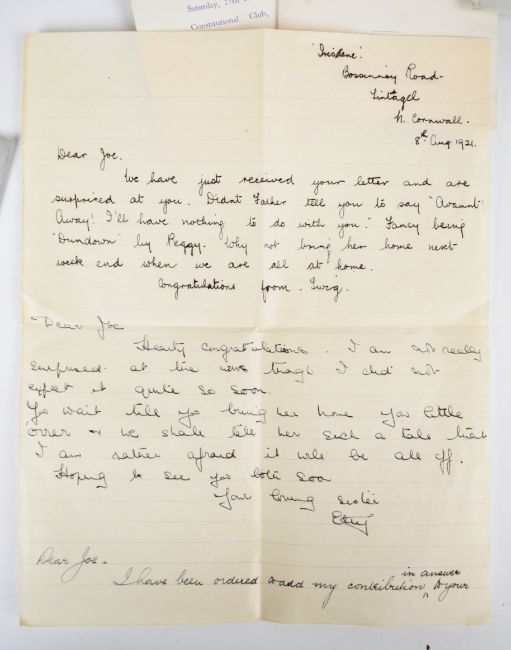 Saturday, 27th
Constitutional Club,
'Irisdene'.
Bossinney Road.
Tintagel
N. Cornwall.
8th Aug. 1921.
Dear Joe.
We have just received your letter and are
surprised at you. Didnt Father tell you to say "Avaunt!
Away! I'll have nothing to do with you." Fancy being
"Dundown" by Peggy. Why not bring her home next
week end when we are all at home.
Congratulations from. Twig.
Dear Joe
Hearty congratulations. I am not really
surprised at the news though I did not
expect it quite so soon.
You wait till you bring her home you little
& we shall tell her such a tale that
I am rather afraid it will be all off.
Hoping to see you both soon
Your loving sister
Dear Joe.-
I have been ordered to add my contribution in answer to your